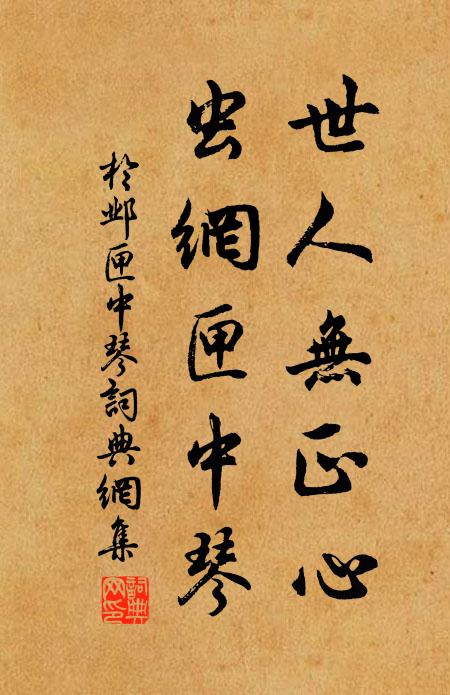 世人無正心
虫網匣中琴
於邺匣中琴詞典網集
詞典网印